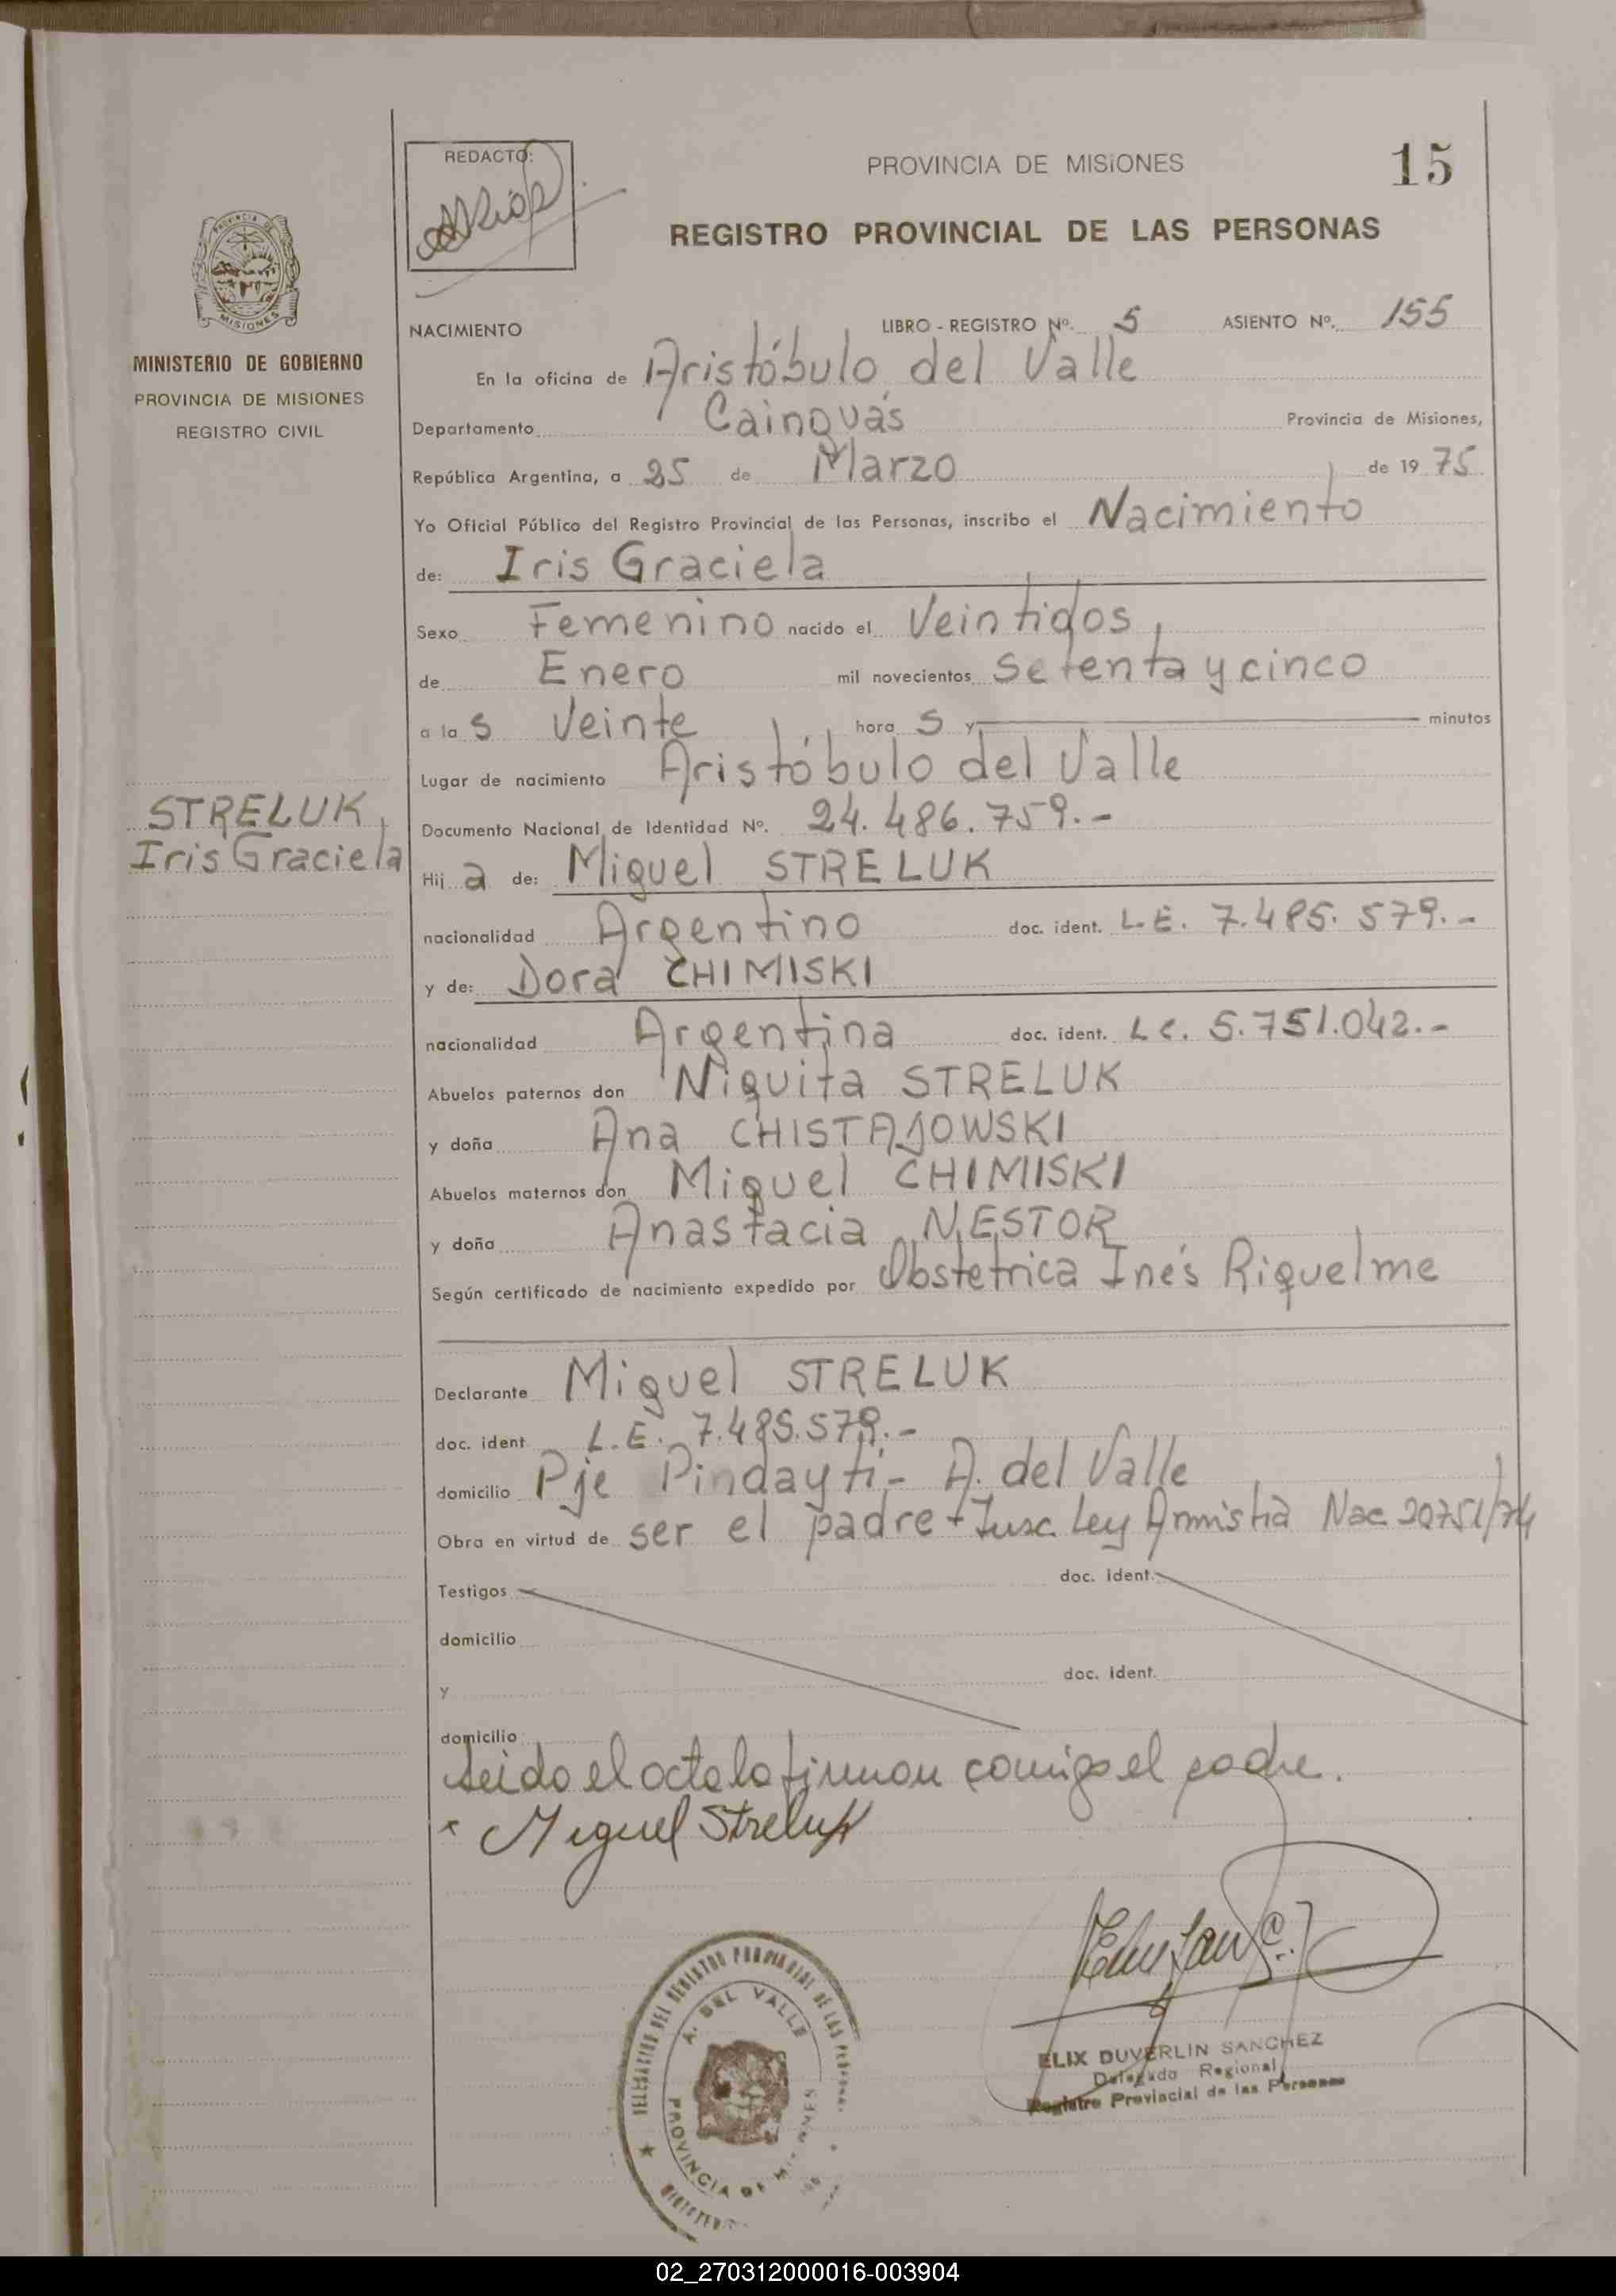 REDACTO:
PROVINCIA DE MISIONES
15
REGISTRO PROVINCIAL DE LAS PERSONAS
PROVINCIA DE
MISIONES
MINISTERIO DE GOBIERNO
PROVINCIA DE MISIONES
REGISTRO CIVIL
NACIMIENTO LIBRO - REGISTRO Nº. 5 ASIENTO Nº. 155
En la oficina de Aristóbulo del Valle
Departamento Cainguás Provincia de Misiones,
República Argentina, a 25 de Marzo de 1975
Yo Oficial Público del Registro Provincial de las Personas, inscribo el Nacimiento
de: Iris Graciela
Sexo Femenino nacido el Veintidos
de Enero mil novecientos Setenta y cinco
a la s Veinte hora s y minutos
Lugar de nacimiento Aristóbulo del Valle
STRELUK,
Iris Graciela
Documento Nacional de Identidad Nº. 24.486.759.-
Hij a de: Miguel STRELUK
nacionalidad Argentino doc. ident. L.E. 7.485.579.-
y de: Dora CHIMISKI
nacionalidad Argentina doc. ident. L.C. 5.751.042.-
Abuelos paternos don Niquita STRELUK
y doña Ana CHISTAJOWSKI
Abuelos maternos don Miguel CHIMISKI
y doña Anastacia NESTOR
Según certificado de nacimiento expedido por Obstetrica Inés Riquelme
Declarante Miguel STRELUK
doc. ident. L.E. 7.485.579.-
domicilio Pje Pindayti - A. del Valle
Obra en virtud de ser el padre + Ley Amnistia Nac. 20751/74
Testigos doc. ident.
domicilio
y doc. ident.
domicilio
Leido el acta la firman conmigo el padre.
Miguel Streluk
DELEGACION DEL REGISTRO PROVINCIAL DE LAS PERSONAS
A. DEL VALLE
PROVINCIA DE MISIONES
ELIX DUVERLIN SANCHEZ
Delegado Regional
Registro Provincial de las Personas
02_270312000016-003904